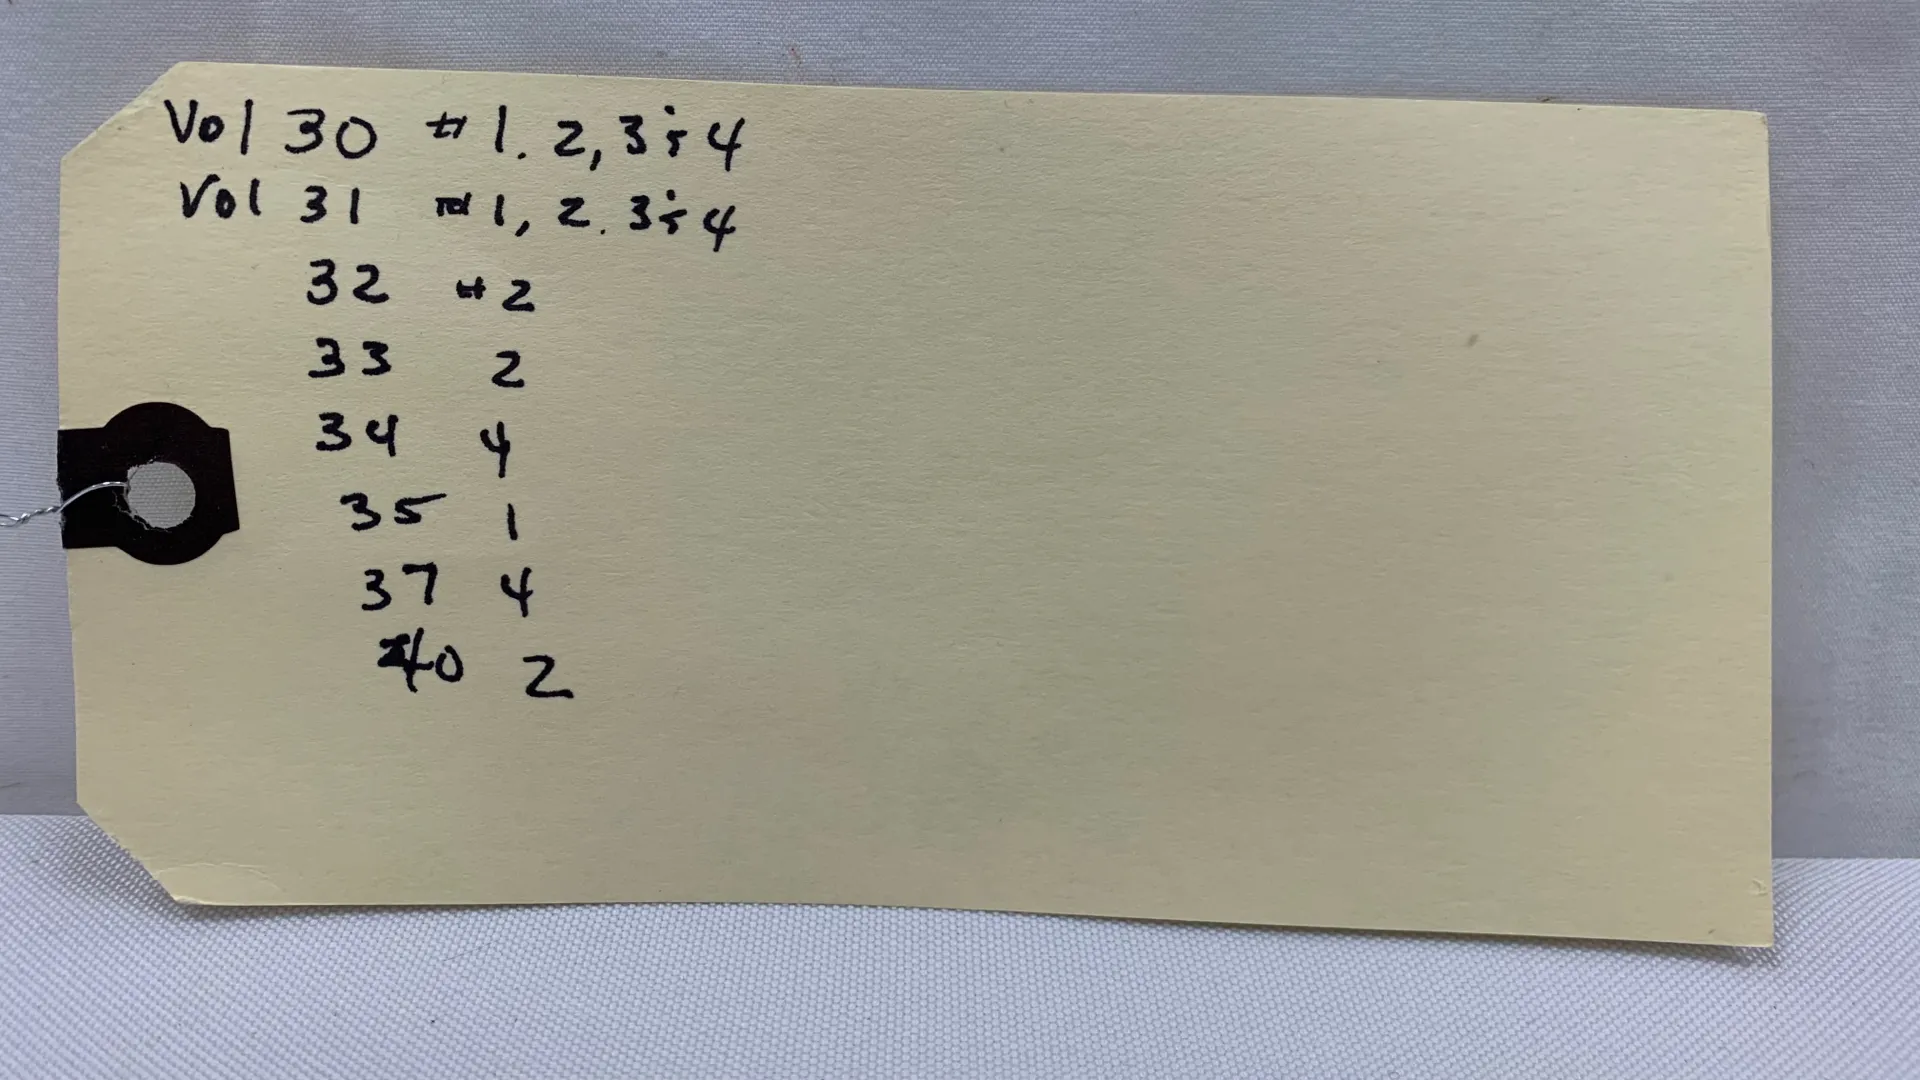 Vol 30 # 1. 2, 3 & 4
Vol 31 # 1, 2. 3 & 4
32 # 2
33 2
34 4
35 1
37 4
40 2